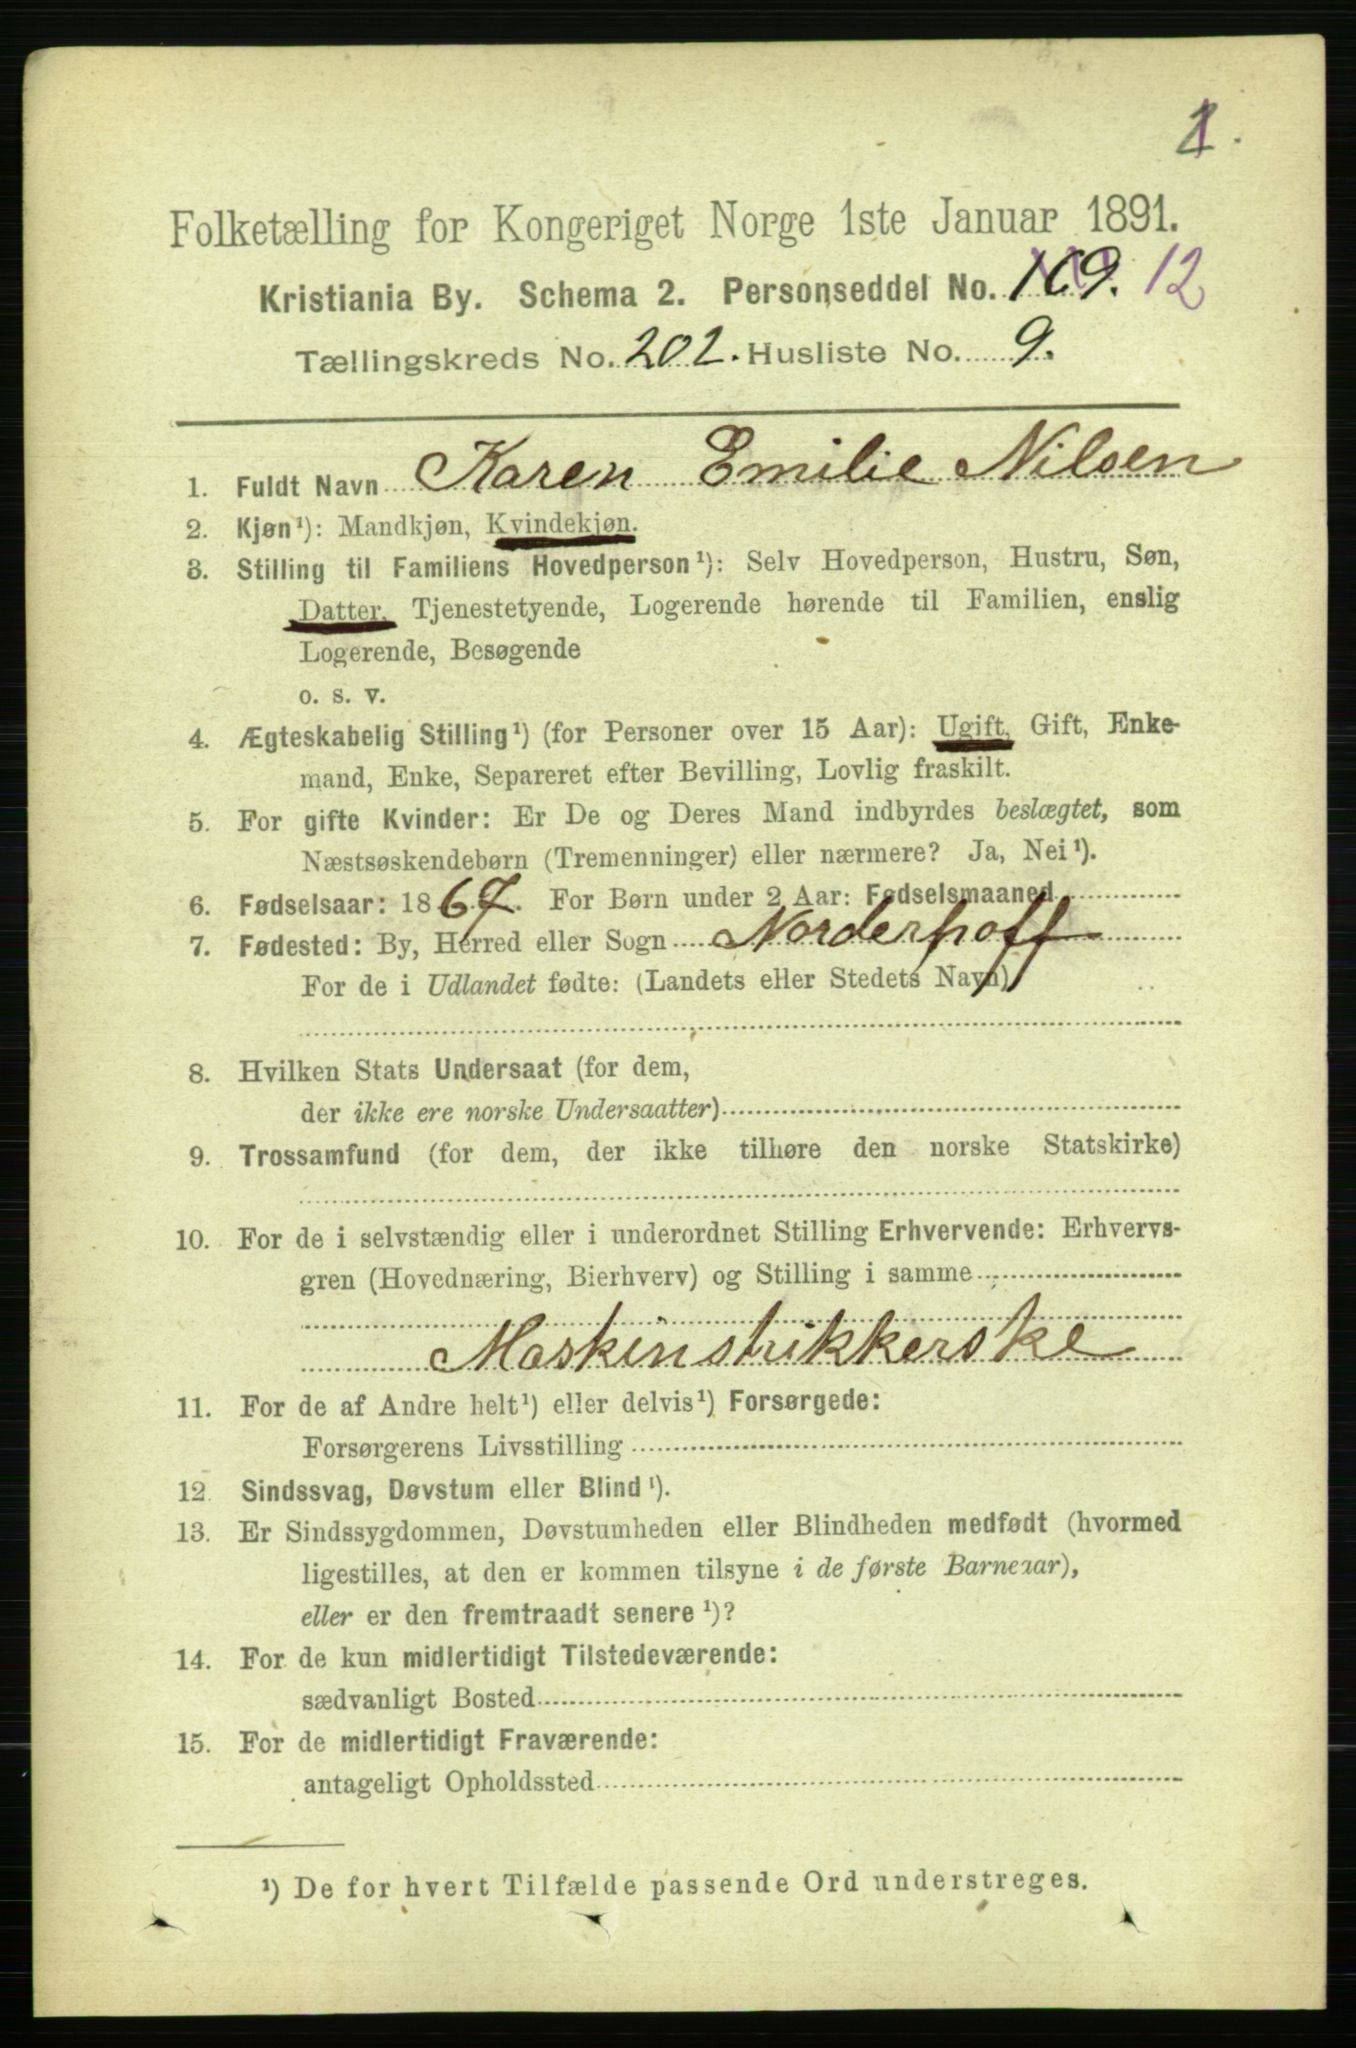 1.
Folketælling for Kongeriget Norge 1ste Januar 1891.
Kristiania By. Schema 2. Personseddel No. 169. 12
Tællingskreds No. 202. Husliste No. 9.
1. Fuldt Navn Karen Emilie Nilsen
2. Kjøn¹): Mandkjøn, Kvindekjøn.
3. Stilling til Familiens Hovedperson¹): Selv Hovedperson, Hustru, Søn,
Datter, Tjenestetyende, Logerende hørende til Familien, enslig
Logerende, Besøgende
o. s. v.
4. Ægteskabelig Stilling¹) (for Personer over 15 Aar): Ugift, Gift, Enke-
mand, Enke, Separeret efter Bevilling, Lovlig fraskilt.
5. For gifte Kvinder: Er De og Deres Mand indbyrdes beslægtet, som
Næstsøskendebørn (Tremenninger) eller nærmere? Ja, Nei¹).
6. Fødselsaar: 1867. For Børn under 2 Aar: Fødselsmaaned
7. Fødested: By, Herred eller Sogn Norderhoff
For de i Udlandet fødte: (Landets eller Stedets Navn)
8. Hvilken Stats Undersaat (for dem,
der ikke ere norske Undersaatter)
9. Trossamfund (for dem, der ikke tilhøre den norske Statskirke)
10. For de i selvstændig eller i underordnet Stilling Erhvervende: Erhvervs-
gren (Hovednæring, Bierhverv) og Stilling i samme
Maskinstrikkerske
11. For de af Andre helt¹) eller delvis¹) Forsørgede:
Forsørgerens Livsstilling
12. Sindssvag, Døvstum eller Blind¹).
13. Er Sindssygdommen, Døvstumheden eller Blindheden medfødt (hvormed
ligestilles, at den er kommen tilsyne i de første Barneaar),
eller er den fremtraadt senere¹)?
14. For de kun midlertidigt Tilstedeværende:
sædvanligt Bosted
15. For de midlertidigt Fraværende:
antageligt Opholdssted
¹) De for hvert Tilfælde passende Ord understreges.